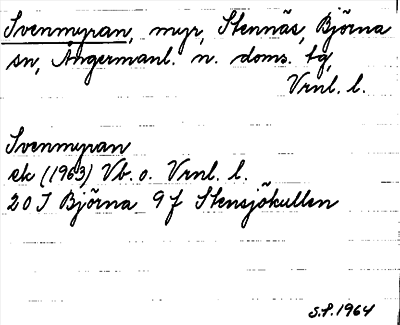 Svenmyran, myr, Stennäs, Björna
sn, Ångermanl. n. doms. tg,
Vrnl. l.
Svenmyran
ek (1963) Vb. o. Vrnl. l.
20 I Björna 9 f Stensjökullen
S.P. 1964